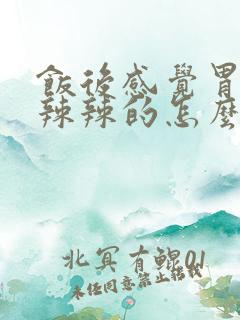 飯後感覺胃
辣辣的怎麼
北冥有鯤01
未任同意禁止转载